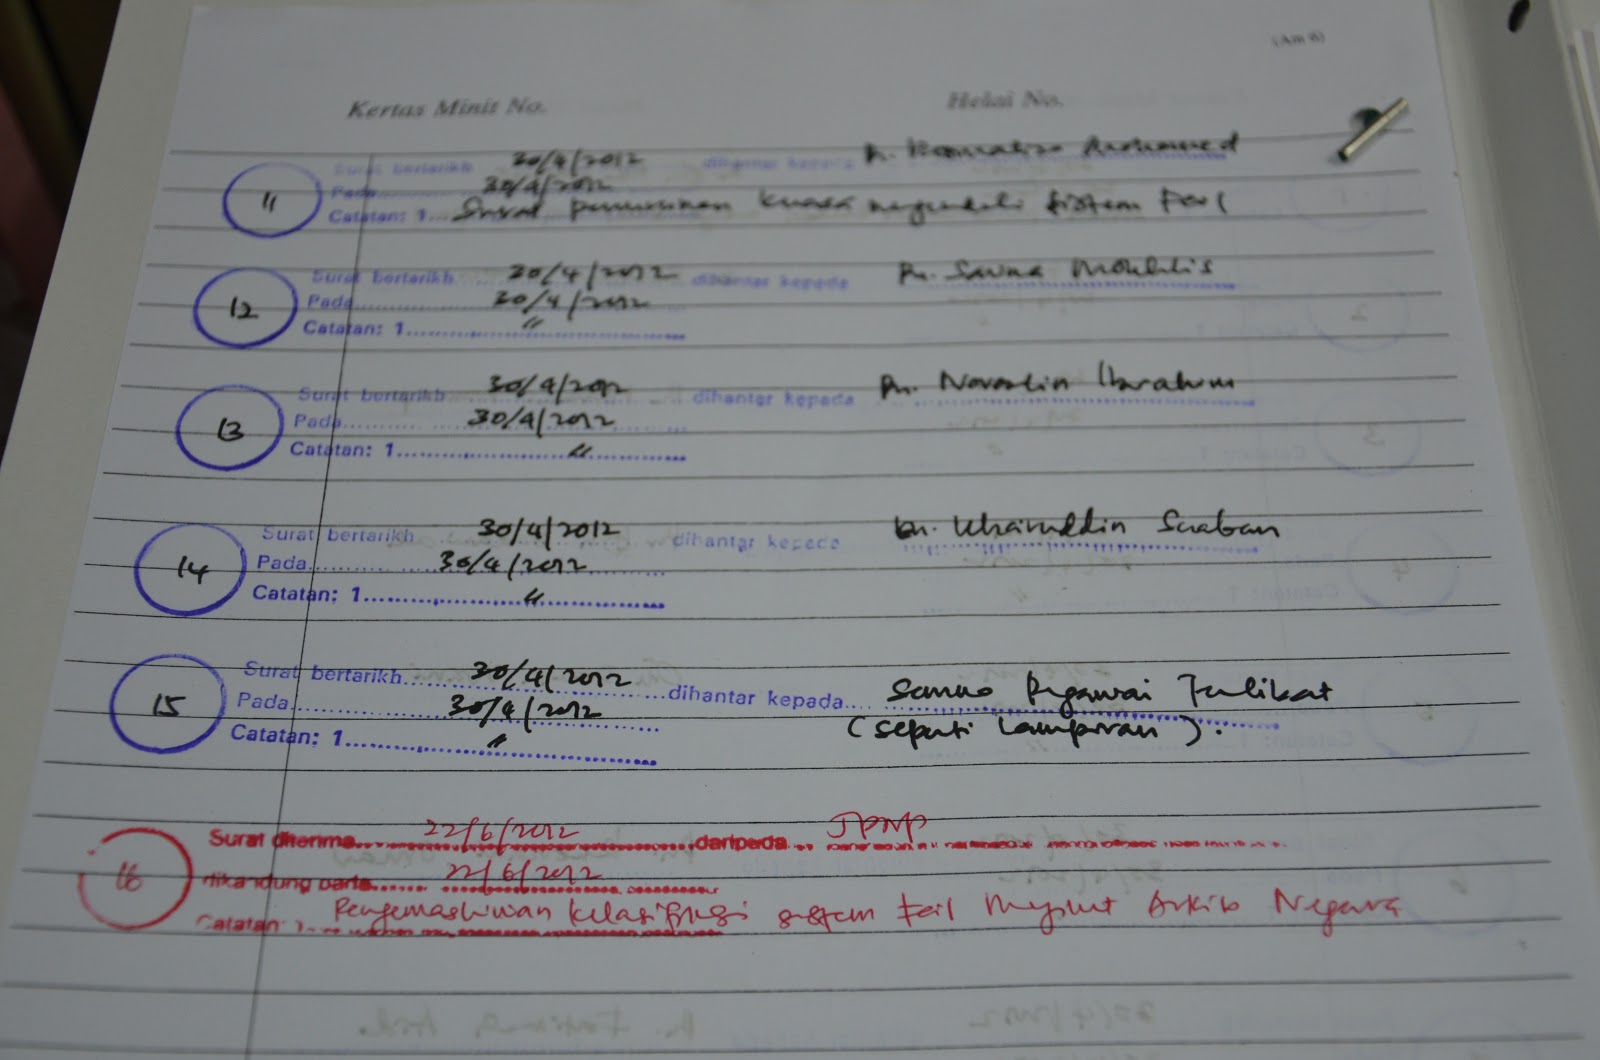 (Am 6)
Kertas Minit No. Helai No.
11 Surat bertarikh 30/4/2012 dihantar kepada Pn. Mohammed
Pada 30/4/2012
Catatan: 1 Surat penurunan kuasa sistem Fail
12 Surat bertarikh 30/4/2012 dihantar kepada Pn. Mokhlis
Pada 30/4/2012
Catatan: 1 "
13 Surat bertarikh 30/4/2012 dihantar kepada Pn. Ibrahim
Pada 30/4/2012
Catatan: 1 "
14 Surat bertarikh 30/4/2012 dihantar kepada En. Khairuddin Saaban
Pada 30/4/2012
Catatan: 1 "
15 Surat bertarikh 30/4/2012 dihantar kepada Semua Pegawai
Pada 30/4/2012 (seperti Lampiran).
Catatan: 1 "
16 Surat diterima 22/6/2012 daripada JPNP
dikandung pada 22/6/2012
Catatan 1 Pengemaskinian klasifikasi sistem fail Arkib Negara